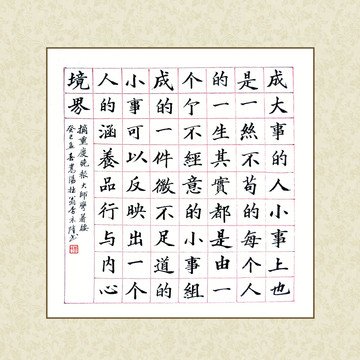 成大事的人小事上也
是一丝不苟的每个人
的一生其實都是由一
个个不經意的小事組
成的一件微不足道的
小事可以反映出一个
人的涵養品行与内心
境界
摘重慶晚報大师
癸巳